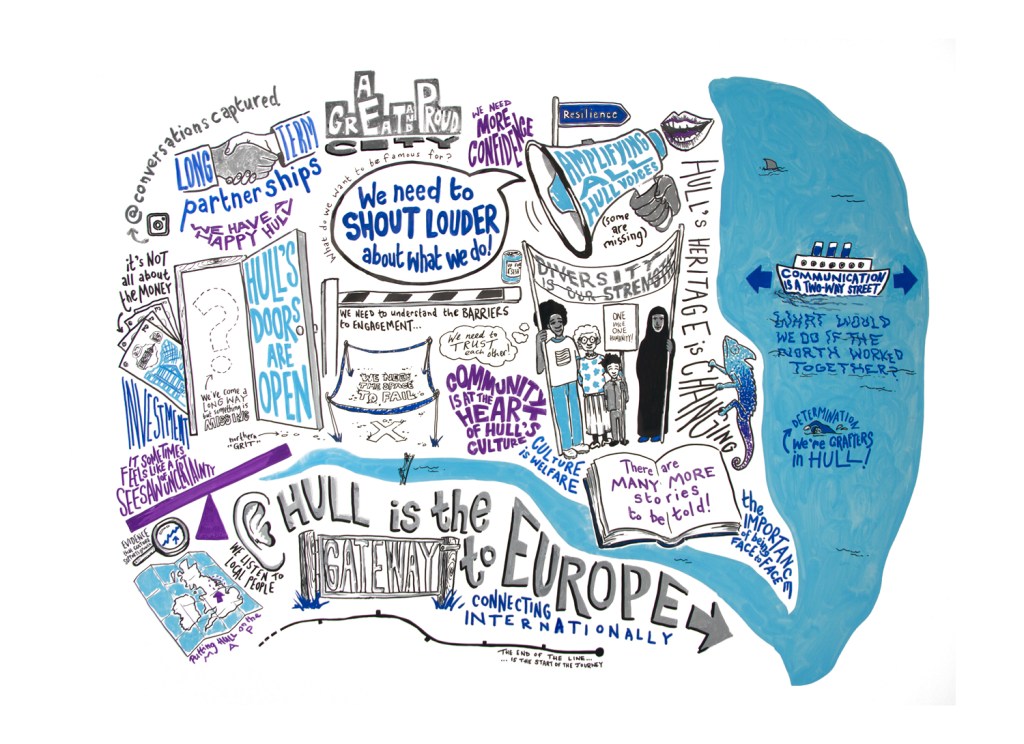 @conversationscaptured
LONG
TERM
partnerships
WE HAVE A
HAPPY HULL
A
GREAT AND PROUD
CITY
What do we want to be famous for?
We need to
SHOUT LOUDER
about what we do!
WE NEED
MORE
CONFIDENCE
Resilience
AMPLIFYING
ALL
HULL VOICES
(some
are
missing)
HULL'S HERITAGE is CHANGING
it's NOT
all about
the MONEY
INVESTMENT
?
WE'VE COME A
LONG WAY
but something is
MISSING
HULL'S
DOORS
ARE
OPEN
northern
"GRIT"
WE NEED TO UNDERSTAND the BARRIERS
to ENGAGEMENT...
We need to
TRUST
each other!
WE NEED
THE SPACE
TO FAIL
X
COMMUNITY
IS AT THE
HEART
OF HULL'S
CULTURE
CULTURE
is WELFARE
DIVERSITY
is OUR STRENGTH
ONE
HULL
ONE
HUMANITY!
There are
MANY MORE
stories
to be told!
the IMPORTANCE
of being
FACE to FACE
COMMUNICATION
IS A TWO-WAY STREET
WHAT WOULD
WE DO IF THE
NORTH WORKED
TOGETHER?
DETERMINATION
We're GRAFTERS
in HULL!
IT SOMETIMES
FEELS LIKE A
SEESAW OF UNCERTAINTY
EVIDENCE
WE LISTEN TO
LOCAL PEOPLE
Putting HULL on the
MAP
HULL is the
GATEWAY
to EUROPE
CONNECTING
INTERNATIONALLY
THE END OF THE LINE...
...IS THE START OF THE JOURNEY